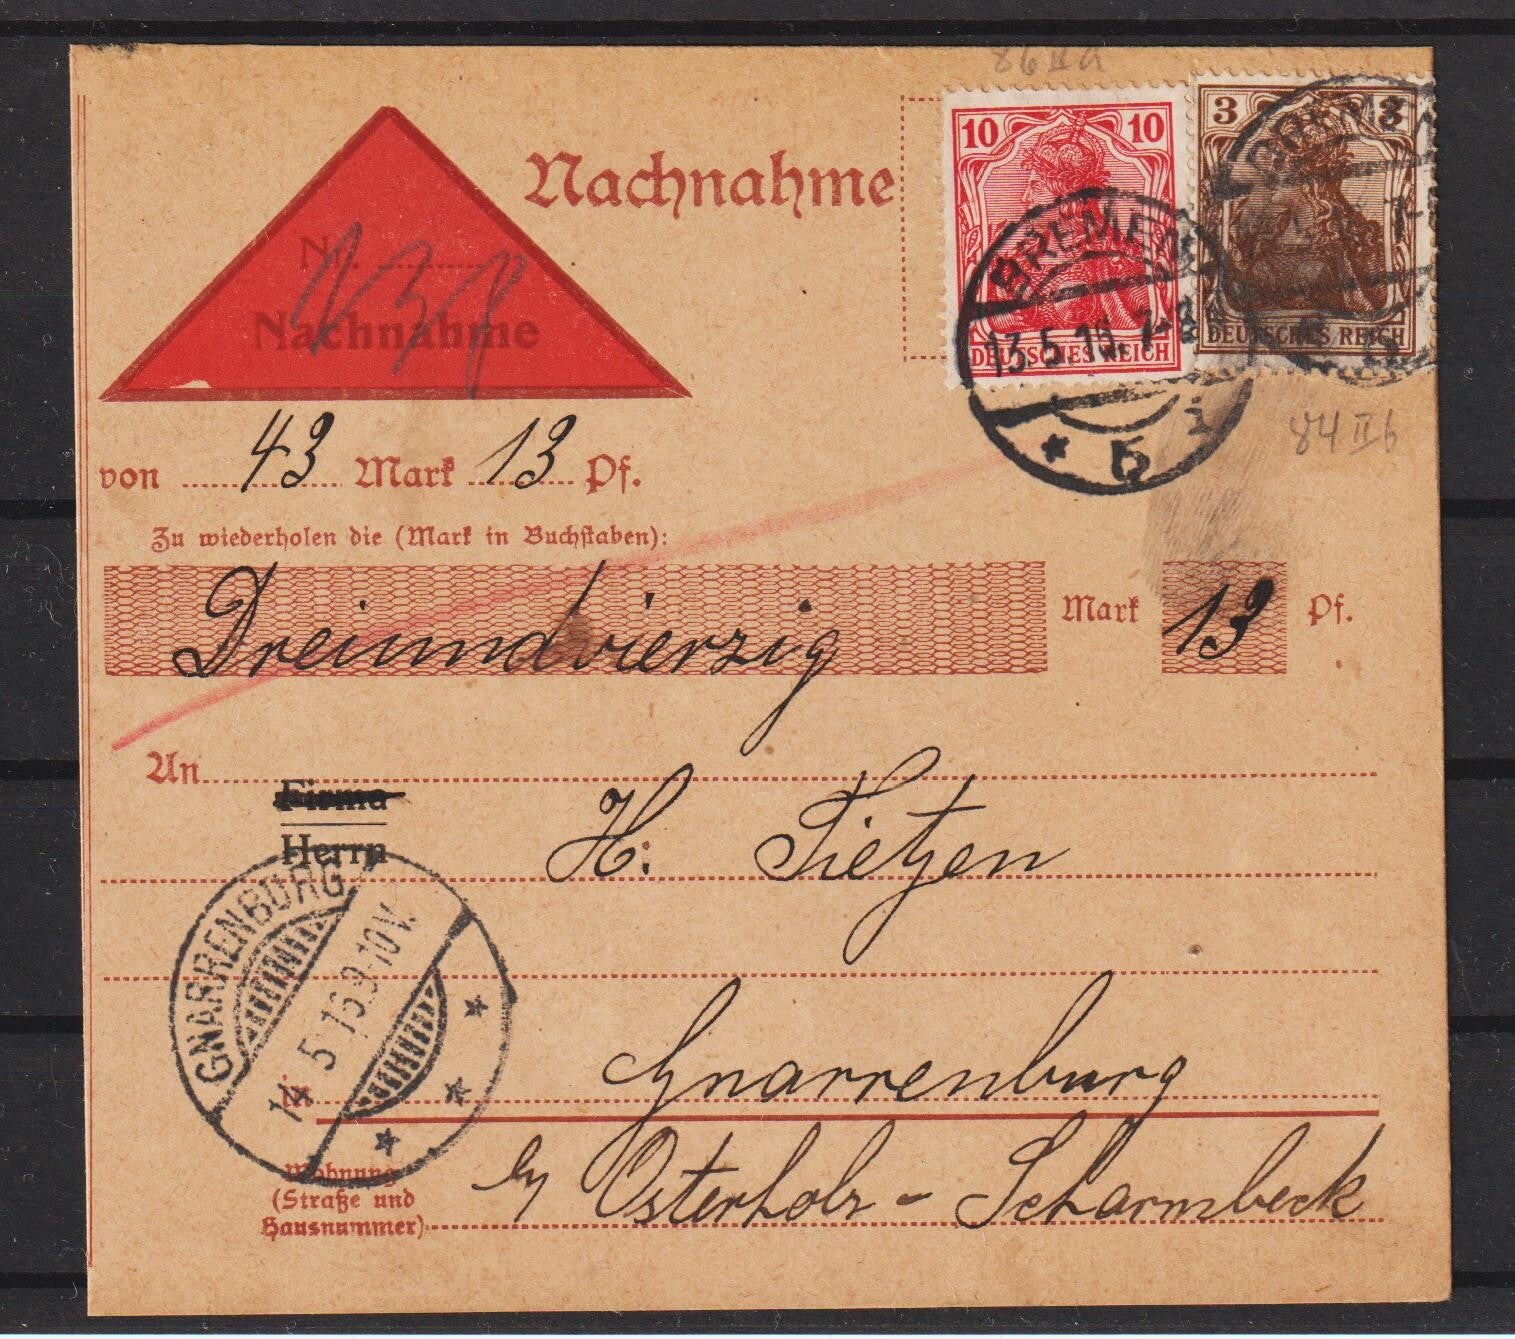 86 II a
10 10
DEUTSCHES REICH
3 3
DEUTSCHES REICH
BREMEN
13.5.16. 7-8
* 5 i
BREMEN
84 II b
Nachnahme
Nr.
Nachnahme
von 43 Mark 13 Pf.
Zu wiederholen die (Mark in Buchstaben):
Dreiundvierzig Mark 13 Pf.
An
Firma
Herrn
H. Tietjen
GNARRENBURG
14 5 16 9-10 V.
in Gnarrenburg
Wohnung
(Straße und
Hausnummer)
by Osterholz-Scharmbeck